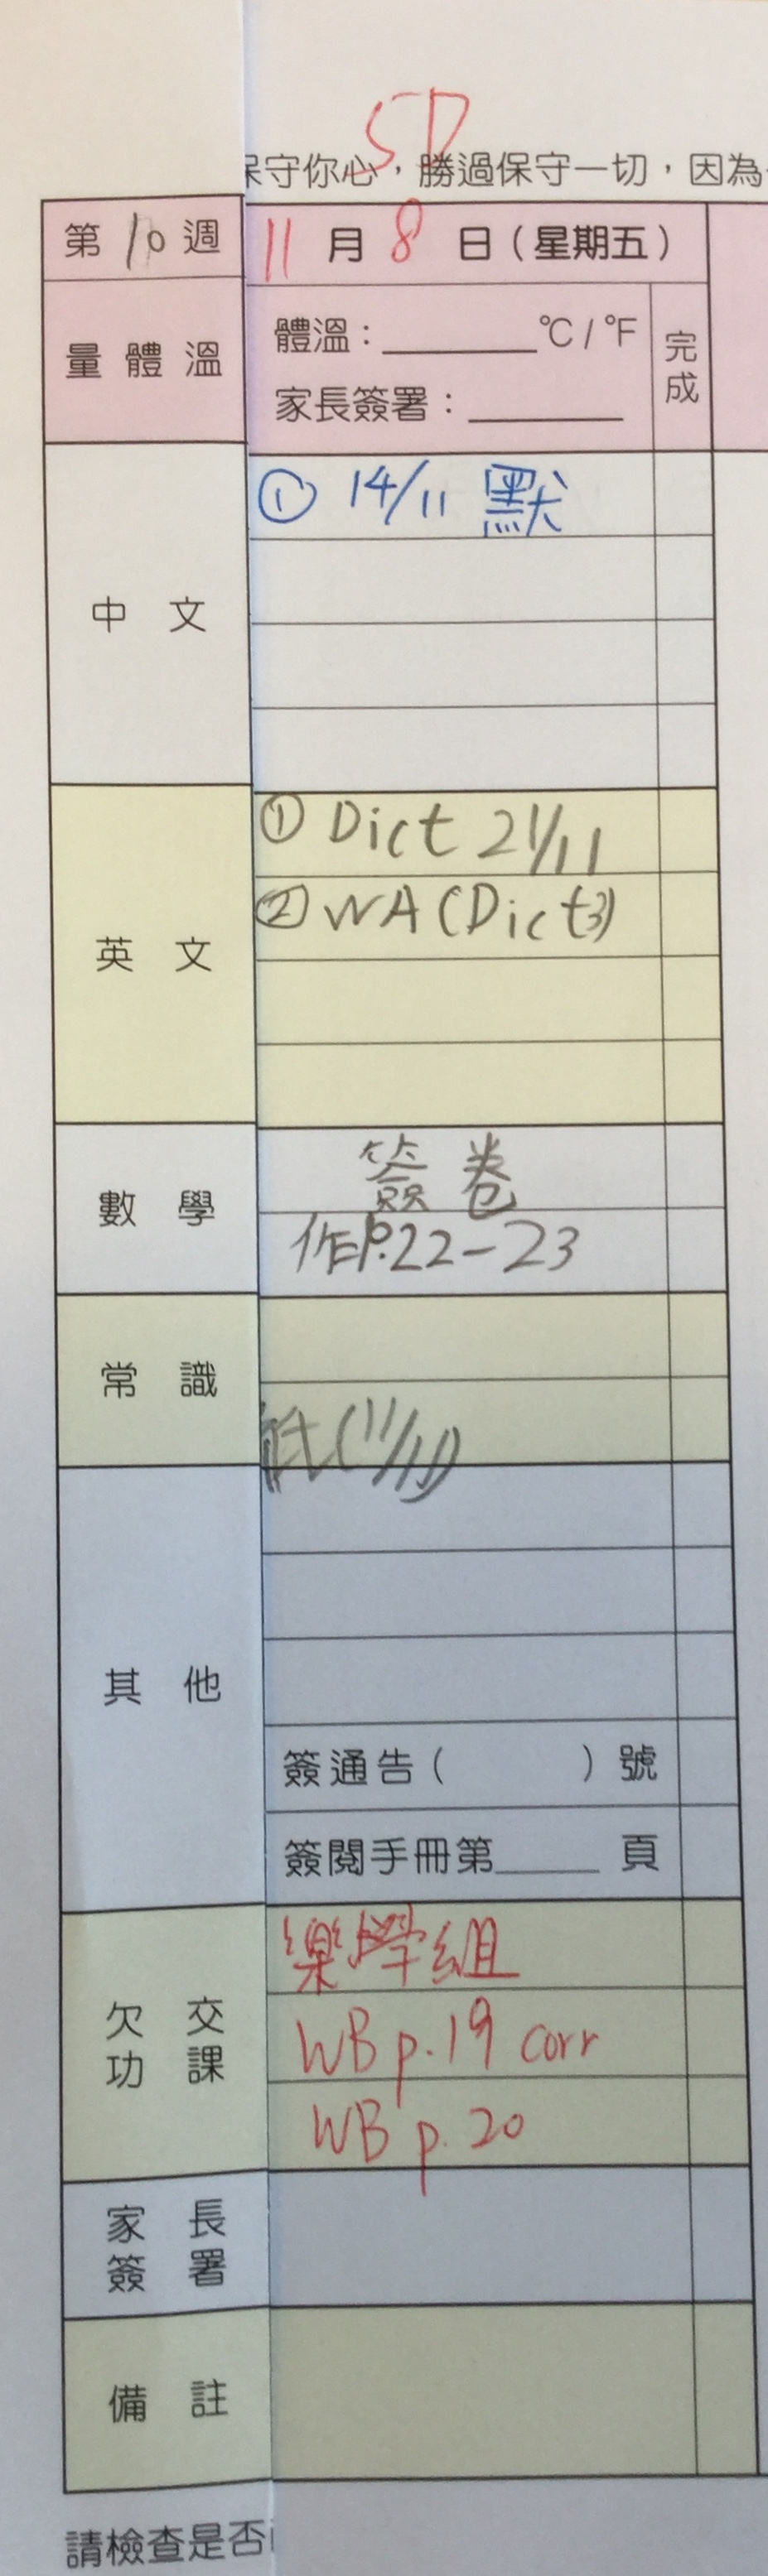 5D
保守你心，勝過保守一切，因為
第 10 週 11 月 8 日（星期五）
量體溫
體溫：______°C / °F
家長簽署：______
完成
中文
① 14/11 默
英文
① Dict 21/11
② WA (Dict3)
數學
簽卷
作P.22-23
常識
(11/11)
其他
簽通告（ ）號
簽閱手冊第____頁
欠交功課
樂學組
WB p.19 corr
WB p.20
家長簽署
備註
請檢查是否